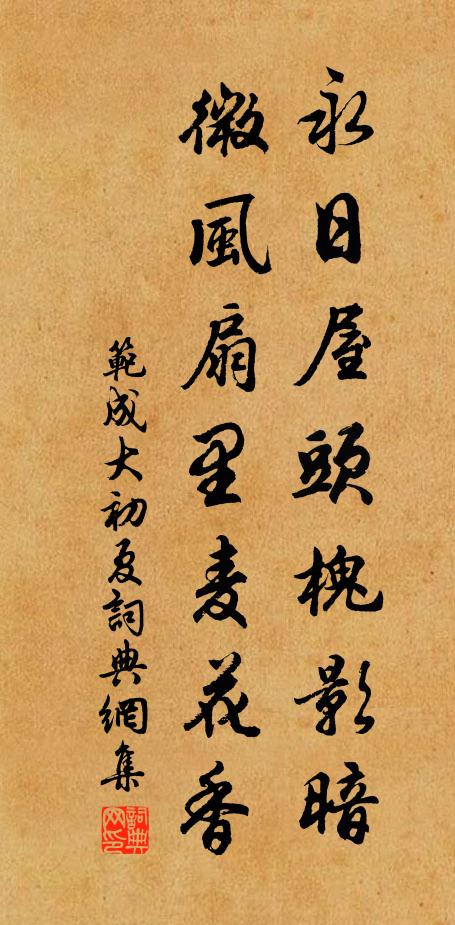 永日屋頭槐影暗
微風扇里麦花香
範成大初夏詞典網集
詞典网印